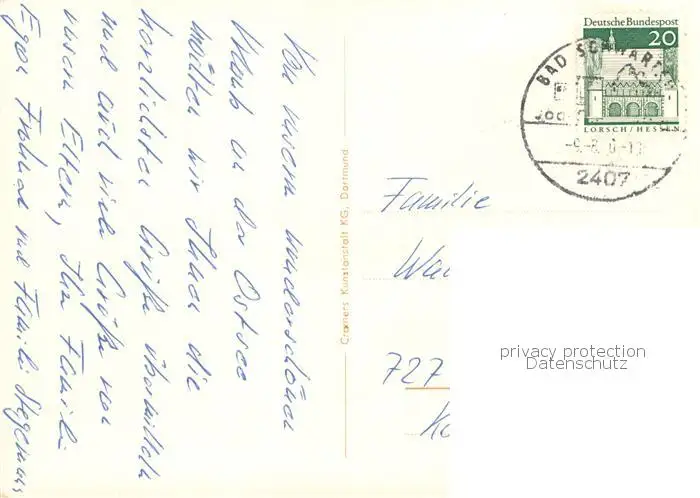 Von unserem wunderschönen
Urlaub an der Ostsee
möchten wir Ihnen die
herzlichsten Grüße übermitteln
und auch viele Grüße von
unseren Eltern, Ihre Familie
Egon Fröhlich und Familie
Cramers Kunstanstalt KG, Dortmund
Deutsche Bundespost
20
LORSCH/HESSEN
BAD SCHWARTAU
2407
Familie
727
privacy protection
Datenschutz